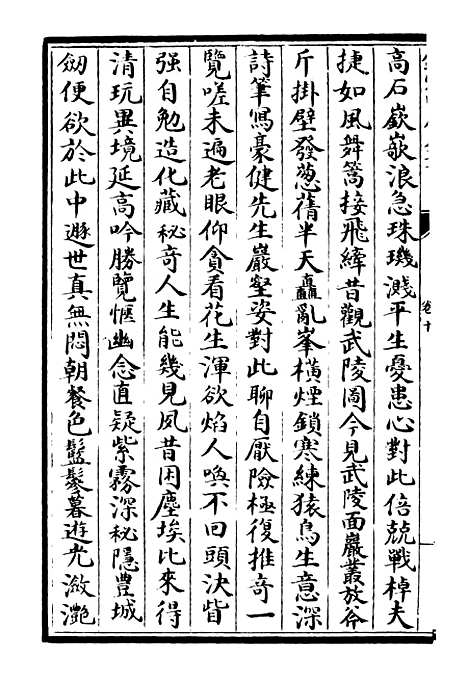 高石嶔嶔浪急珠璣濺平生憂患心對此倍兢戰棹夫
捷如風舞篙接飛縴昔觀武陵圖今見武陵面巖叢放谷
斤掛壁發葱蒨半天矗亂峯橫煙鎖寒練猿鳥生意深
詩筆寫豪健先生巖壑姿對此聊自厭險極復推奇一
覽嗟未遍老眼仰貪看花生渾欲焰人喚不回頭決眥
强自勉造化藏秘奇人生能幾見夙昔困塵埃比來得
清玩異境延高吟勝覽愜幽念直疑紫霧深秘隱豐城
劒便欲於此中遯世真無悶朝餐色鬱鬟暮遊光瀲灩
卷十